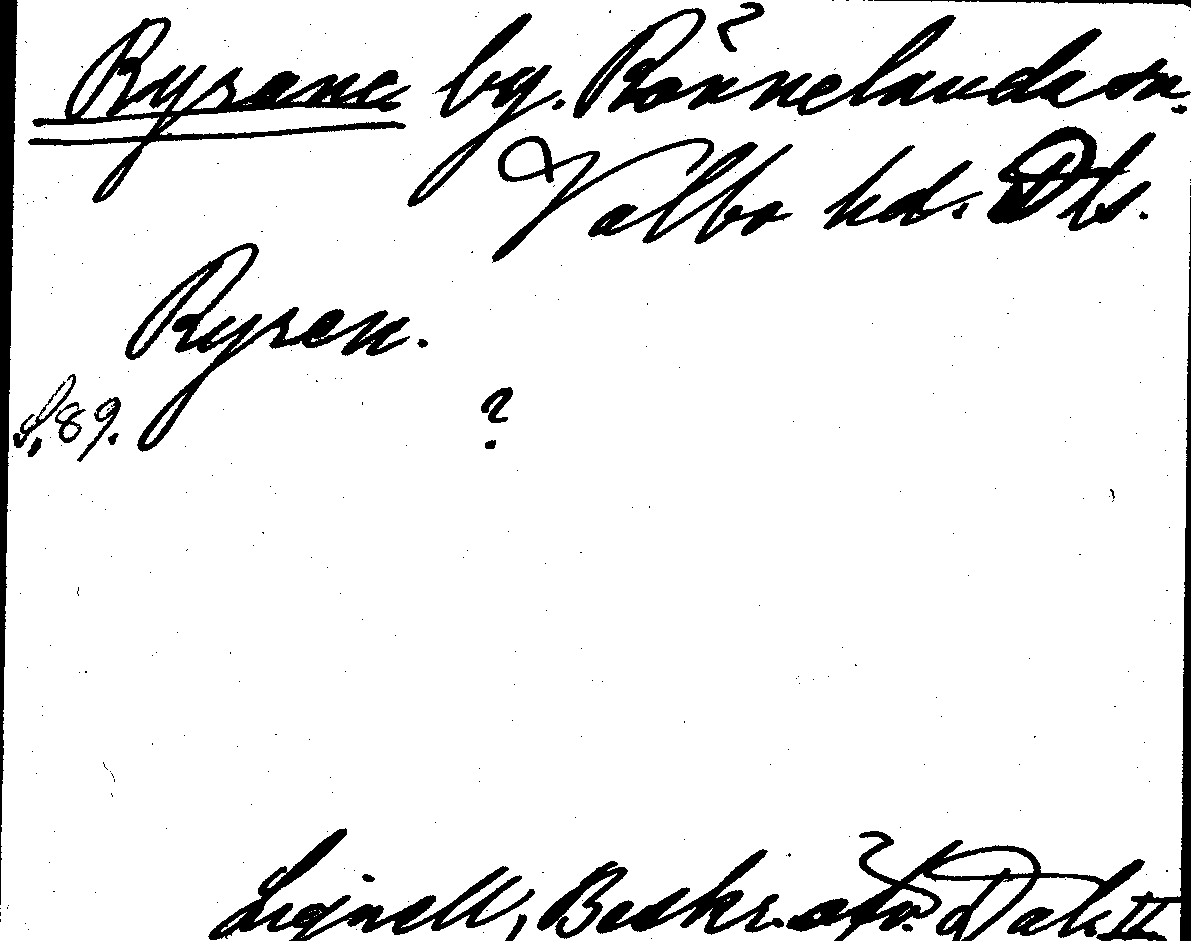 Ryrane by. Rönnelanda sn.
Valbo hd. Dls.
Ryren.
S. 89. ?
Lignell, Beskr. öfv. Dal. II